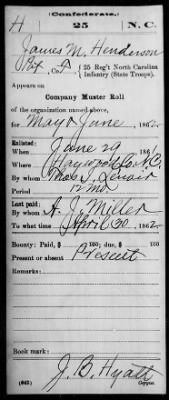 (Confederate.)
H 25 N.C.
James M. Henderson
Pvt, Co. F, 25 Reg't North Carolina
Infantry (State Troops)
Appears on
Company Muster Roll
of the organization named above,
for May & June, 1862.
Enlisted:
When June 29, 1861
Where Haywood Co. N.C.
By whom Thos. I. Lenoir
Period 12 mo
Last paid:
By whom A. J. Miller
To what time April 30, 1862.
Bounty: Paid, $ 100; due, $ 100
Present or absent Present
Remarks:
Book mark:
J. B. Hyatt
(642) Copyist.